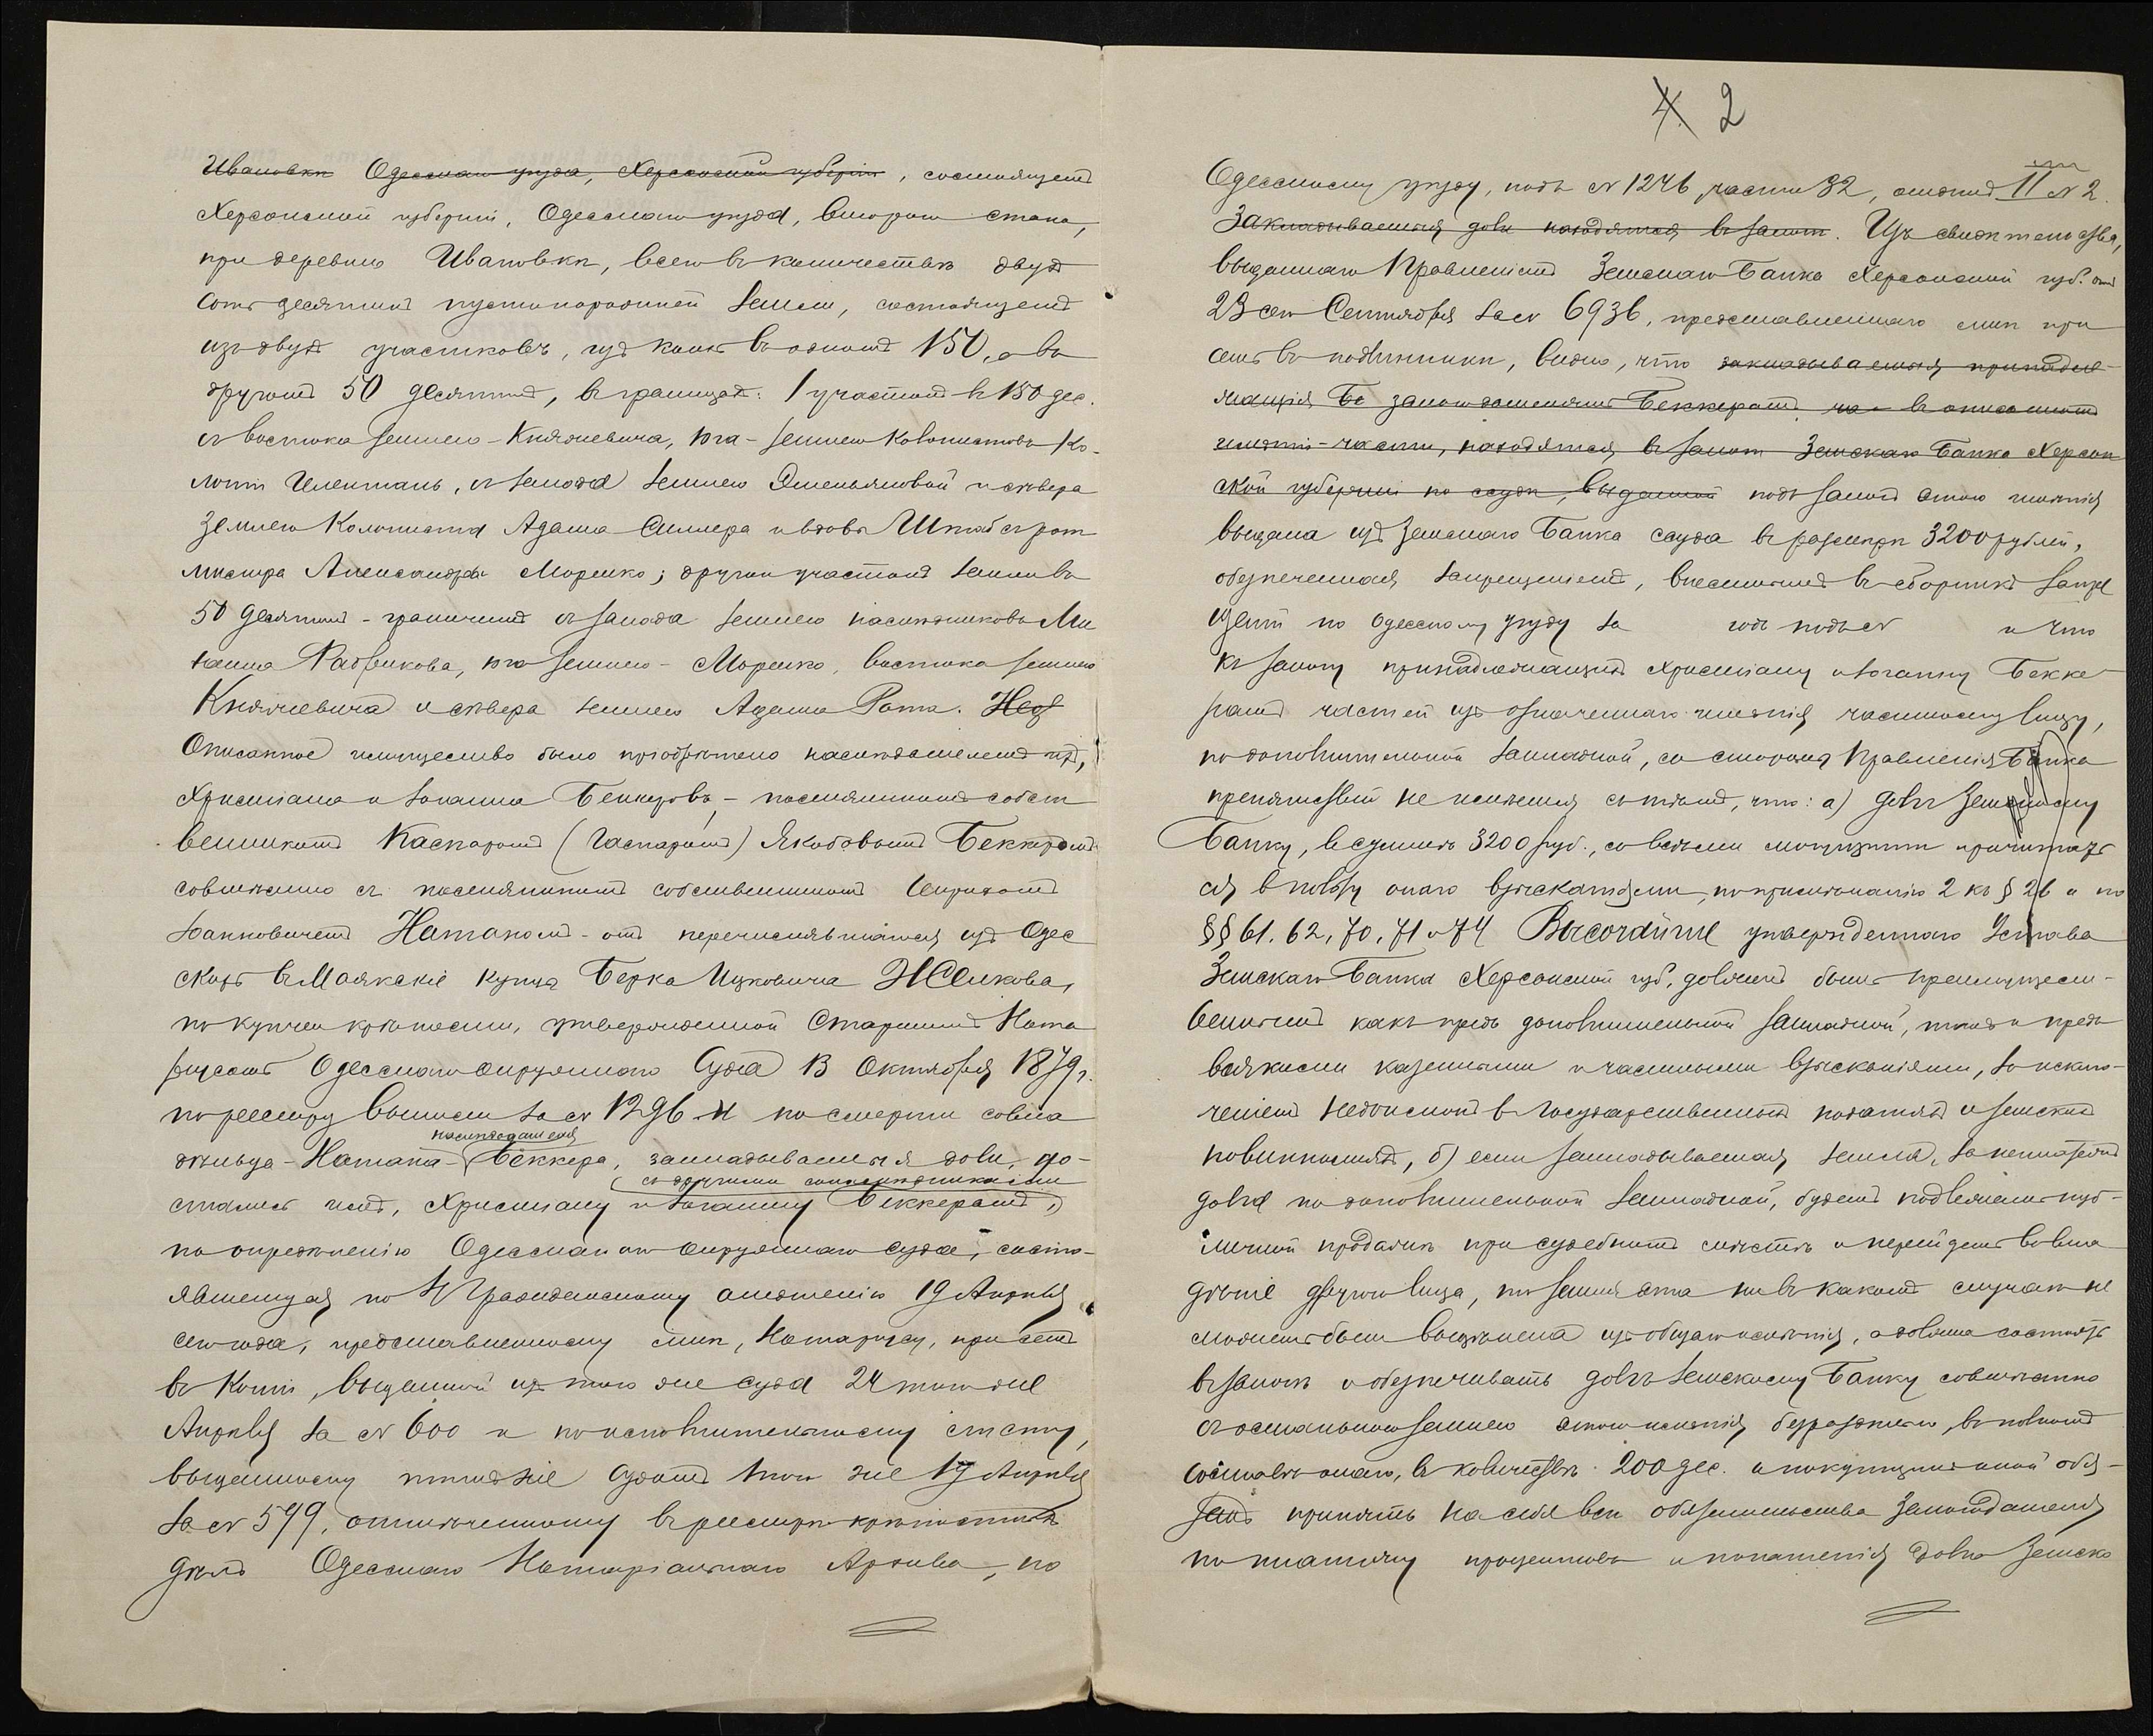 Ивановки Одесскаго уѣзда, Херсонской губерніи, состоящемъ
Херсонской губерніи, Одесскаго уѣзда, втораго стана,
при деревнѣ Ивановкѣ, всего въ количествѣ двухъ
сотъ десятинъ пустопорожней земли, состоящемъ
изъ двухъ участковъ, изъ коихъ въ одномъ 150, а въ
другомъ 50 десятинъ, въ границахъ: 1 участокъ въ 150 дес.
съ востока землею - Княжевича, юга - землею колонистовъ Ко-
лоніи Гелененталь, съ запада землею Емельяновой и сѣвера
землею Колониста Адама Силлера и вдовы Штабсъ рот
мистра Александры Моренко; другой участокъ земли въ
50 десятинъ - граничитъ съ запада землею наслѣдниковъ Ми
хаила Радзикова, юга землею - Моренко, востока землею
Княжевича и сѣвера землею Адама Рота.
Описанное имущество было пріобрѣтено наслѣдодателемъ ихъ,
Христіана и Іоганна Беккеровъ, - поселяниномъ собст
венникомъ Каспаромъ (Гаспаромъ) Якобовымъ Беккеромъ
совмѣстно съ поселяниномъ собственникомъ Генрихомъ
Іоганновичемъ Натаномъ - отъ перечислявшагося изъ Одес
скихъ въ Маякскіе купца Берка Ицковича
по купчей крѣпости, утвержденной Старшимъ Нота
ріусомъ Одесскаго окружнаго Суда 13 Октября 1879 г.
по реестру за № 1296 И по смерти совла
наслѣдодателя
дѣльца - Натана - Беккера, закладываемыя доли, до-
съ другими сонаслѣдниками
стались имъ, Христіану и Іоганну Беккерамъ,
по опредѣленію Одесскаго окружнаго суда, состо-
явшемуся по Гражданскому отдѣленію 19 Апрѣля
сего года, представленному мнѣ, Нотаріусу, при семъ
въ копіи, выданной изъ того же суда 24 того же
Апрѣля за № 600 и по исполнительному листу,
выданному тѣмъ же Судомъ того же 19 Апрѣля
за № 599, отмѣченному въ реестрѣ крѣпостныхъ
дѣлъ Одесскаго Нотаріальнаго Архива, по
4. 2
Одесскому уѣзду, подъ № 1246, части 32, отдѣлъ II № 2.
Закладываемыя доли находятся въ залогѣ. Изъ свидѣтельства,
выданнаго Правленіемъ Земскаго Банка Херсонской губ. отъ
23 сего Сентября за № 6936, представленнаго мнѣ при
семъ въ подлинникѣ, видно, что закладываемыя принадле-
жащія залогодателямъ Беккерамъ въ описанномъ
имѣніи - части, находятся въ залогѣ Земскаго Банка Херсон
ской губерніи по ссудѣ, выданной подъ залогъ этого имѣнія
выдана изъ Земскаго Банка ссуда въ размѣрѣ 3200 рублей,
обезпеченная запрещеніемъ, внесеннымъ въ сборникъ запре
щеній по Одесскому уѣзду за годъ подъ № и что
къ залогу принадлежащихъ Христіану и Іоганну Бекке-
рамъ частей изъ означеннаго имѣнія частному лицу,
по дополнительной закладной, со стороны Правленія Банка
препятствій не имѣется съ тѣмъ, что: а) долгъ Земскому
Банку, въ суммѣ 3200 руб., со всѣми могущими причитать
ся въ пользу онаго взысканіями, по примѣчанію 2 къ § 26 и по
§§ 61, 62, 70, 71 и 74 Высочайше утвержденнаго Устава
Земскаго Банка Херсонской губ, долженъ быть преимущест-
веннымъ какъ предъ дополнительной закладной, такъ и предъ
всякими казенными и частными взысканіями, за исклю-
ченіемъ недоимокъ въ государственныхъ податяхъ и земскихъ
повинностяхъ, б) если закладываемая земля, за неплатежъ
долга по дополнительной закладной, будетъ подвержена пуб-
личной продажѣ при судебномъ мѣстѣ и перейдетъ во вла
дѣніе другого лица, то земля эта ни въ какомъ случаѣ не
можетъ быть выдѣлена изъ общаго имѣнія, а должна состоять
въ залогѣ и обезпечивать долгъ Земскому Банку совмѣстно
съ остальною землею этого имѣнія безраздѣльно, въ полномъ
составѣ онаго, въ количествѣ 200 дес. и покупщикъ оной обя-
занъ принять на себя всѣ обязательства Залогодателя
по платежу процентовъ и погашенія долга Земско